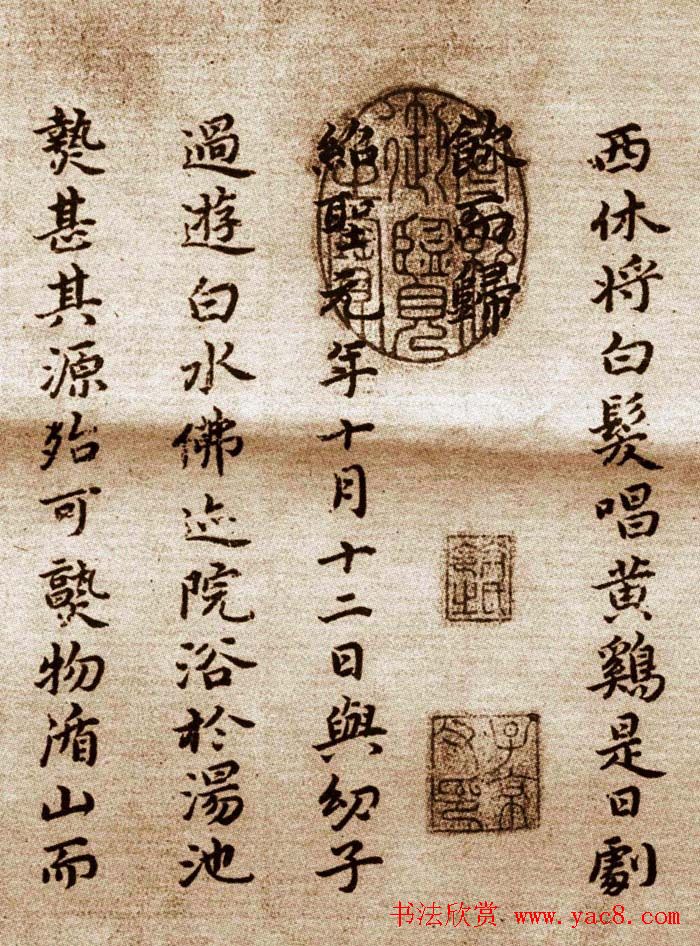 西休将白髮唱黄鷄是日劇
飲而歸
紹聖元年十月十二日與幼子
過遊白水佛迹院浴於湯池
熱甚其源殆可熟物循山而
子京父印
书法欣赏 www.yac8.com